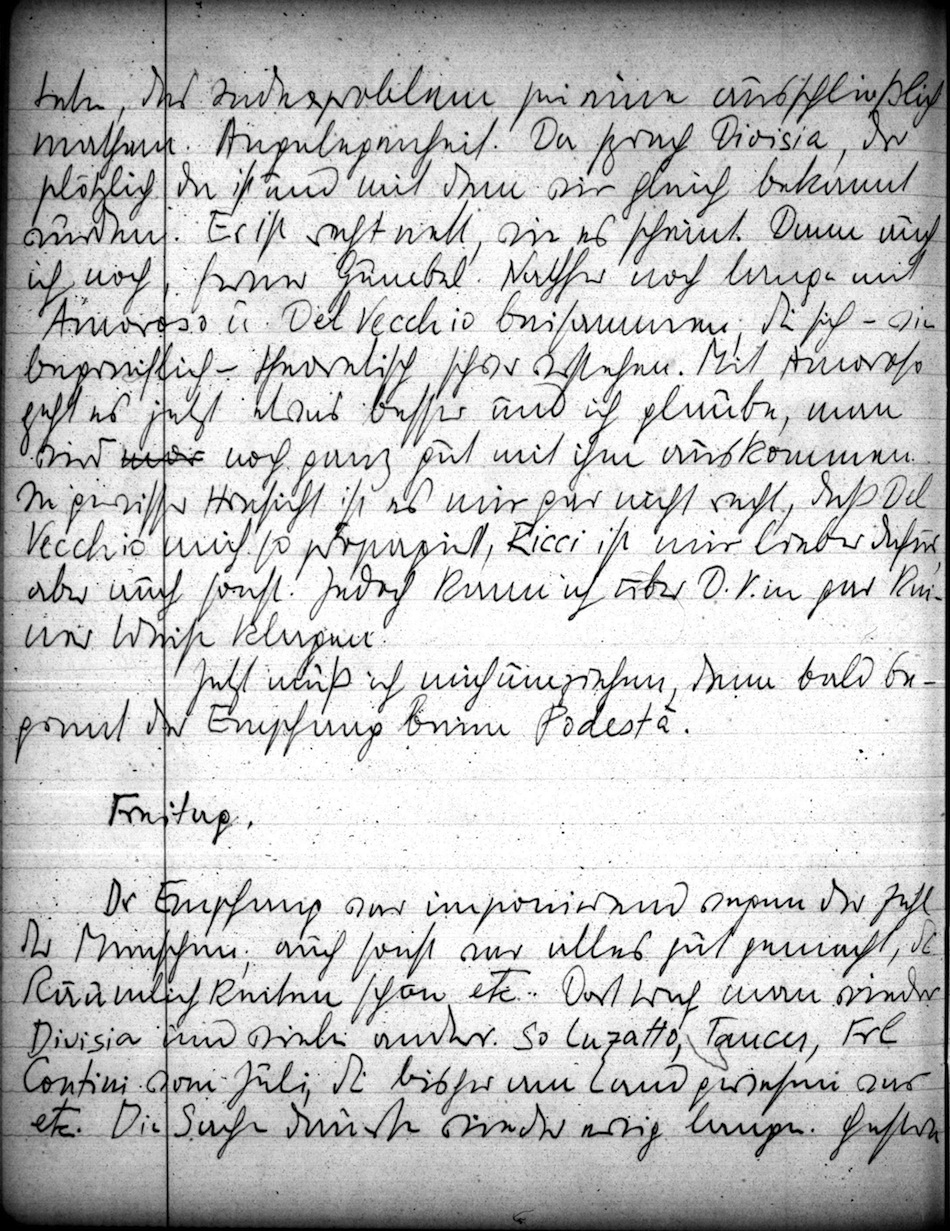 habe, das Indexproblem sei eine ausschließlich
mathem. Angelegenheit. Da sprach Divisia, der
plötzlich da ist und mit dem wir gleich bekannt
wurden. Er ist recht nett, wie es scheint. Dann auch
ich noch, ferner Gumbel. Nachher noch lange mit
Amoroso u. Del Vecchio beisammen, die sich – wie
begreiflich – theoretisch schwer verstehen. Mit Amoroso
geht es jetzt etwas besser und ich glaube, man
wird noch ganz gut mit ihm auskommen.
In gewisser Hinsicht ist es mir gar nicht recht, daß Del
Vecchio mich so propagiert, Ricci ist mir lieber dafür,
aber auch sonst. Jedoch kann ich über D.V. in gar kei-
ner Weise klagen.
Jetzt muß ich mich umziehen, denn bald be-
ginnt der Empfang beim Podestà.
Freitag.
Der Empfang war imponierend wegen der Zahl
der Menschen; auch sonst war alles gut gemacht, die
Räumlichkeiten schön etc. Dort traf man wieder
Divisia und viele andere. So Luzatto, Fanccy, Frl
Contini vom Juli, die bisher am Land gewesen war
etc. Die Sache dauerte wieder ewig lange. Gestern